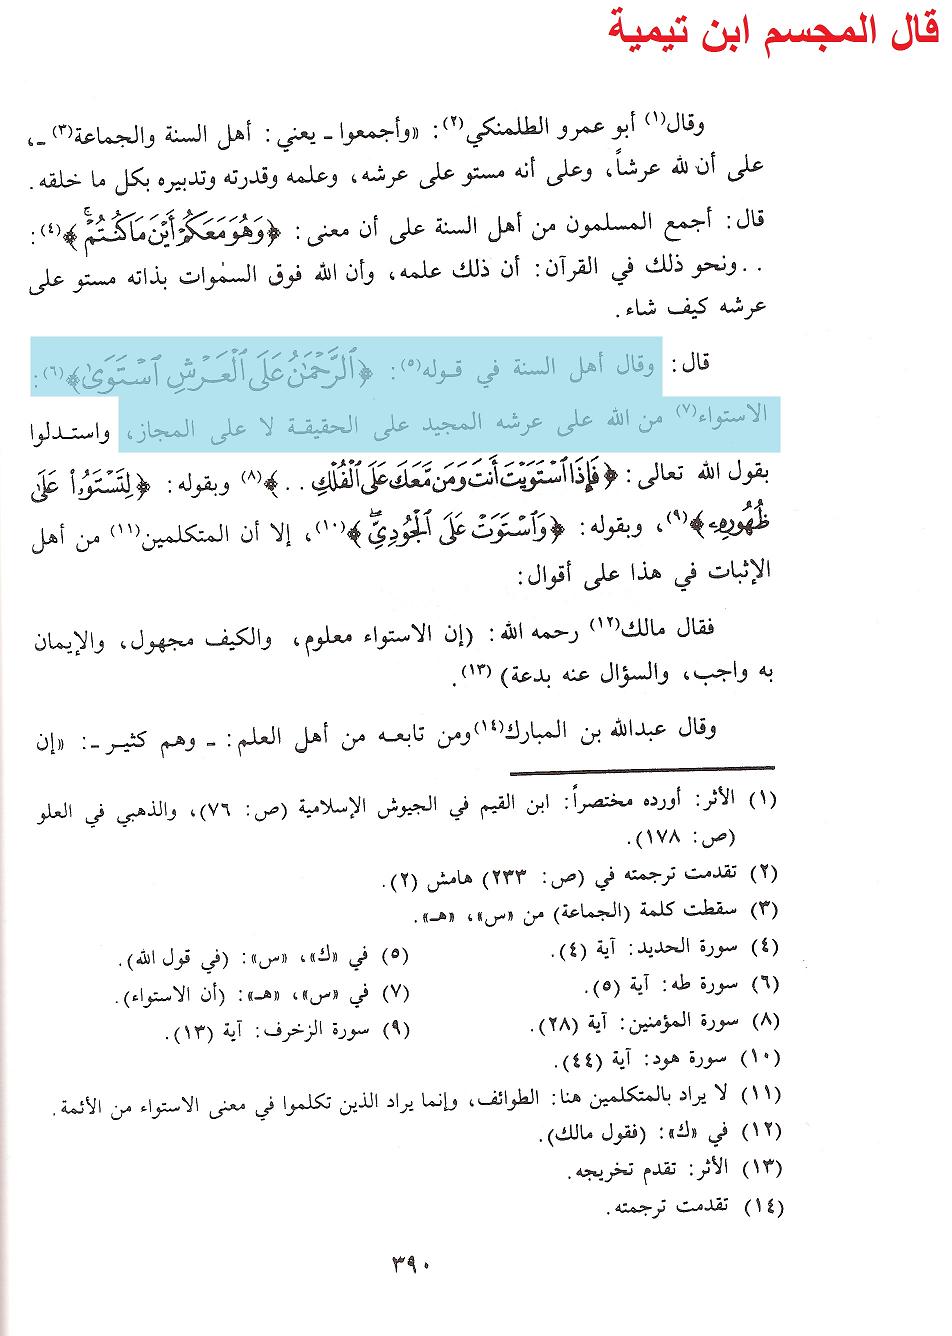 قال المجسم ابن تيمية
وقال(١) أبو عمرو الطلمنكي(٢): «وأجمعوا ـ يعني: أهل السنة والجماعة(٣) ـ،
على أن لله عرشاً، وعلى أنه مستو على عرشه، وعلمه وقدرته وتدبيره بكل ما خلقه.
قال: أجمع المسلمون من أهل السنة على أن معنى: ﴿وَهُوَ مَعَكُمْ أَيْنَ مَا كُنْتُمْ﴾(٤):
. . ونحو ذلك في القرآن: أن ذلك علمه، وأن الله فوق السمٰوات بذاته مستو على
عرشه كيف شاء.
قال: وقال أهل السنة في قـوله(٥): ﴿ٱلرَّحْمَٰنُ عَلَى ٱلْعَرْشِ ٱسْتَوَىٰ﴾(٦):
الاستواء(٧) من الله على عرشه المجيد على الحقيقـة لا على المجاز، واستـدلوا
بقول الله تعالى: ﴿فَإِذَا ٱسْتَوَيْتَ أَنتَ وَمَن مَّعَكَ عَلَى ٱلْفُلْكِ . .﴾(٨) وبقوله: ﴿لِتَسْتَوُۥاْ عَلَىٰ
ظُهُورِهِۦ﴾(٩)، وبقوله: ﴿وَٱسْتَوَتْ عَلَى ٱلْجُودِيِّ﴾(١٠)، إلا أن المتكلمين(١١) من أهل
الإثبات في هذا على أقوال:
فقال مالك(١٢) رحمه الله: (إن الاستواء معلوم، والكيف مجهول، والإيمان
به واجب، والسؤال عنه بدعة)(١٣).
وقال عبدالله بن المبارك(١٤) ومن تابعـه من أهل العلم: ـ وهم كثيـر ـ: «إن
(١) الأثر: أورده مختصراً: ابن القيم في الجيوش الإسلامية (ص: ٧٦)، والذهبي في العلو
(ص: ١٧٨).
(٢) تقدمت ترجمته في (ص: ٢٣٣) هامش (٢).
(٣) سقطت كلمة (الجماعة) من «س»، «هـ».
(٤) سورة الحديد: آية (٤).
(٥) في «ك»، «س»: (في قول الله).
(٦) سورة طه: آية (٥).
(٧) في «س»، «هـ»: (أن الاستواء).
(٨) سورة المؤمنين: آية (٢٨).
(٩) سورة الزخرف: آية (١٣).
(١٠) سورة هود: آية (٤٤).
(١١) لا يراد بالمتكلمين هنا: الطوائف، وإنما يراد الذين تكلموا في معنى الاستواء من الأئمة.
(١٢) في «ك»: (فقول مالك).
(١٣) الأثر: تقدم تخريجه.
(١٤) تقدمت ترجمته.
٣٩٠